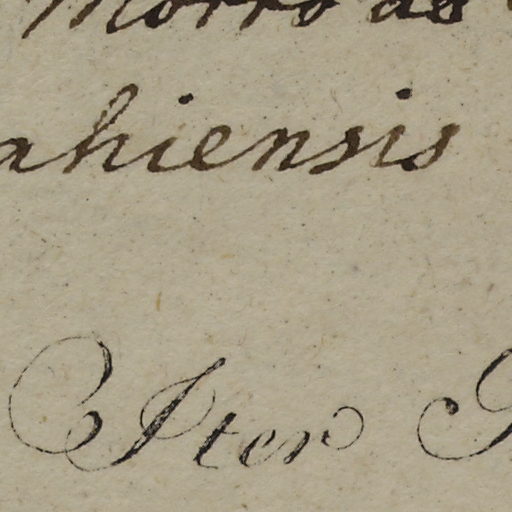 Morro do
ahiensis
Iter